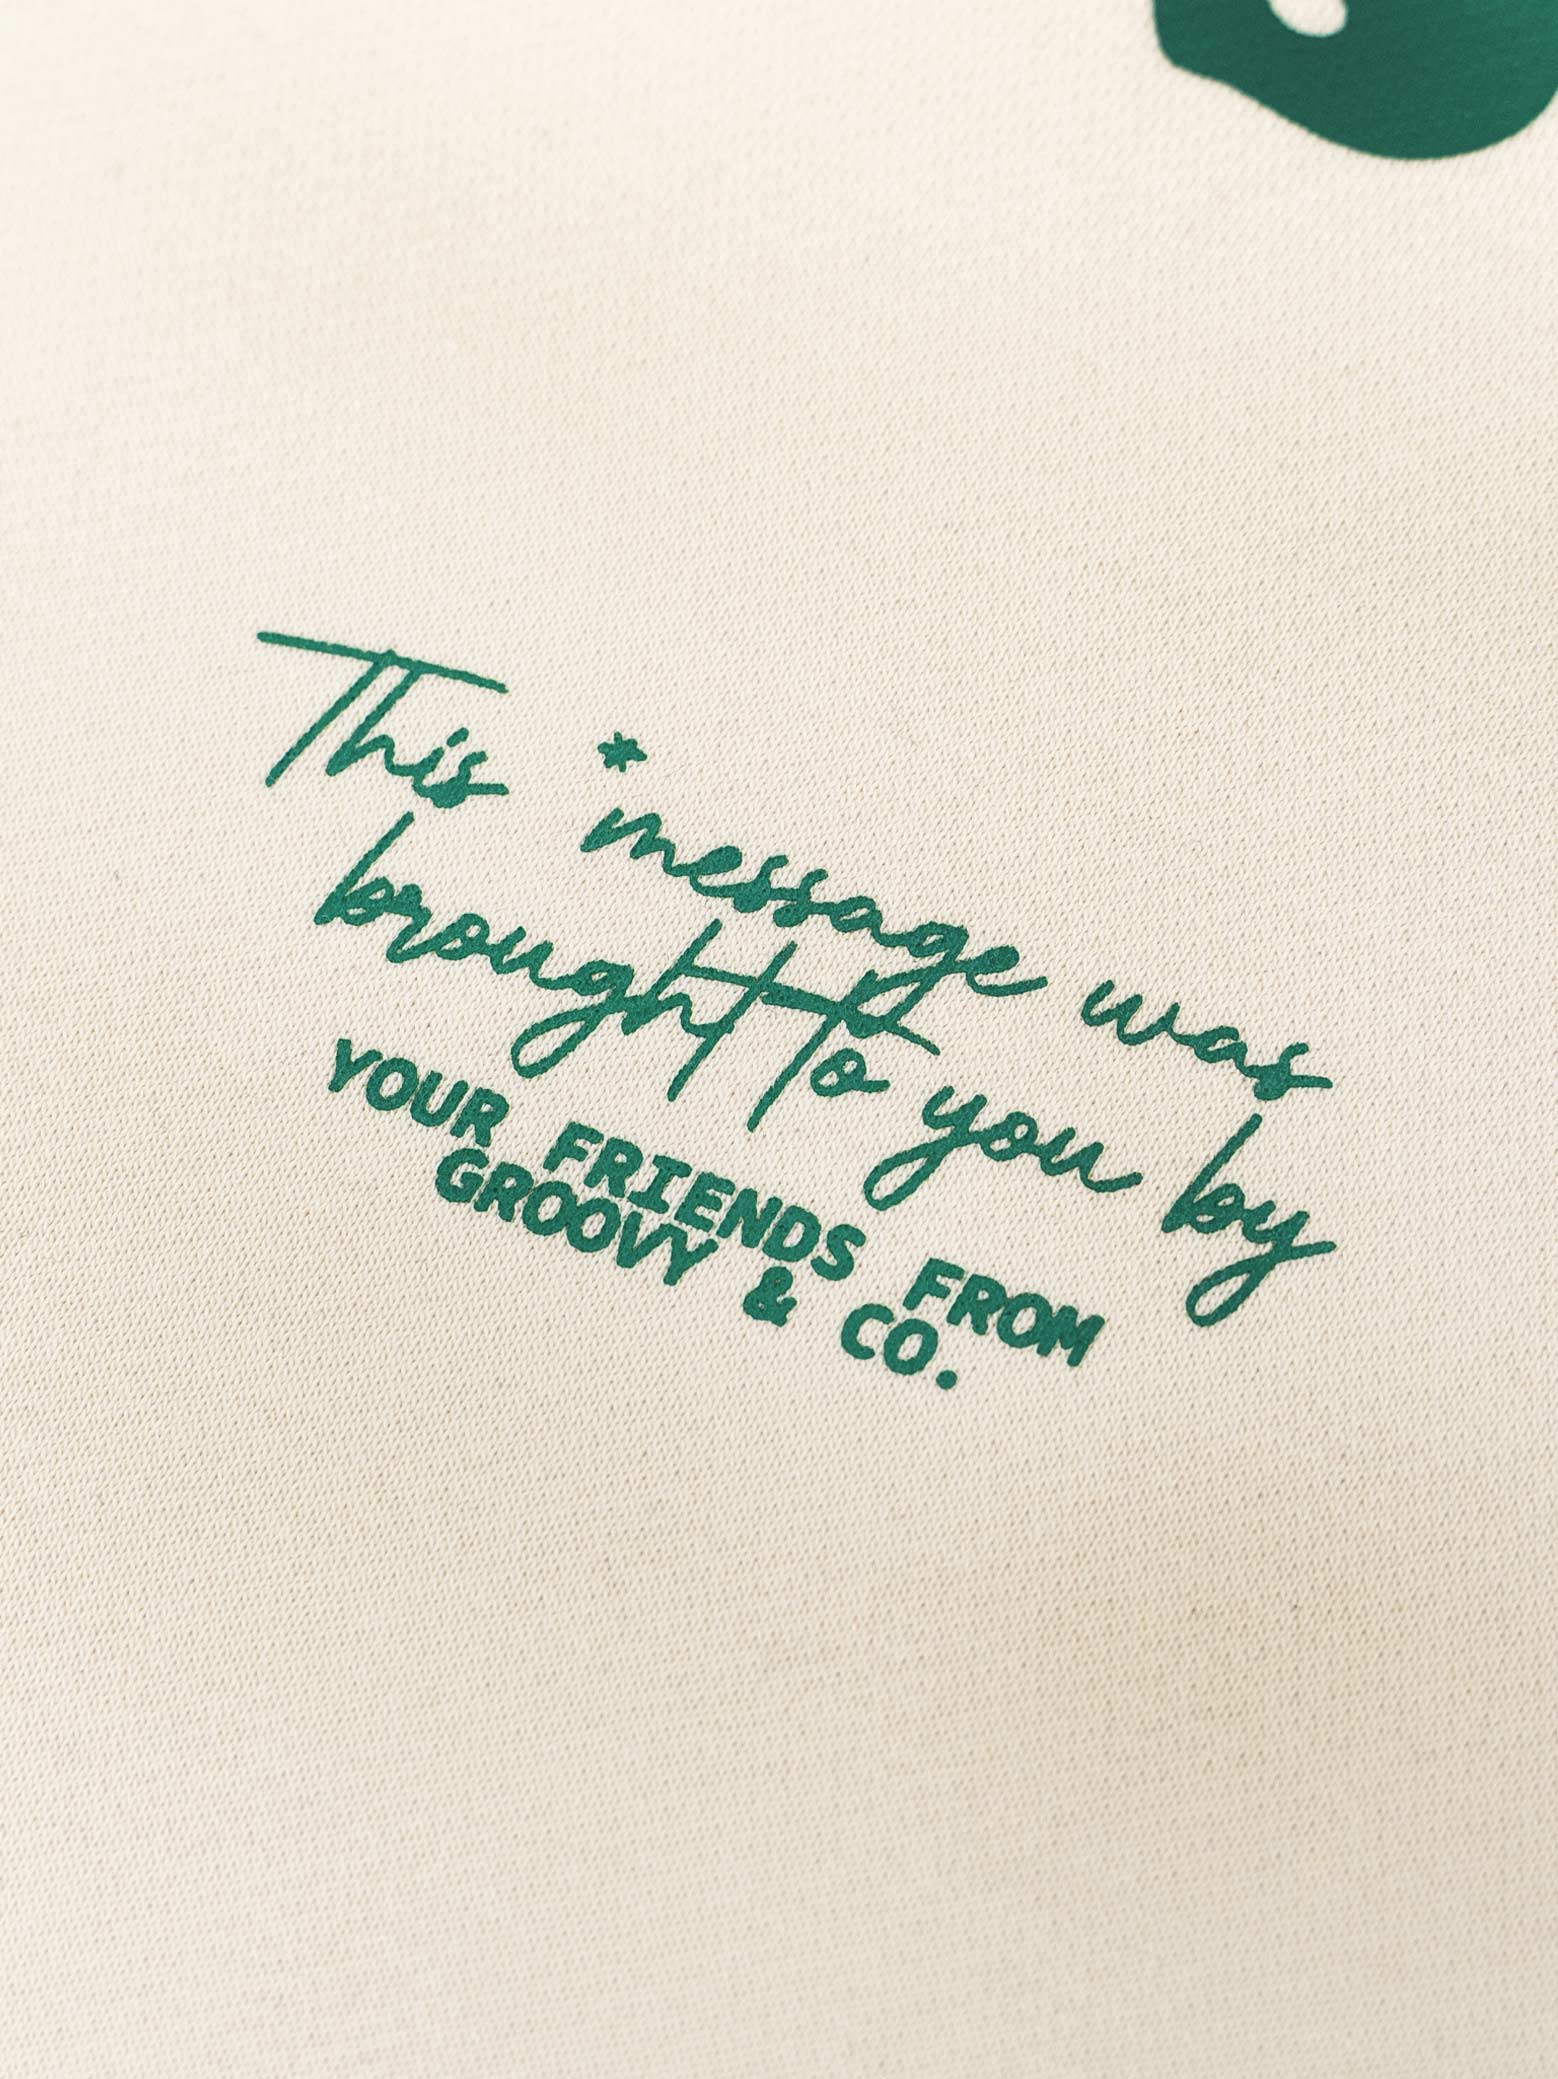 This *message was
brought to you by
YOUR FRIENDS FROM
GROOVY & CO.